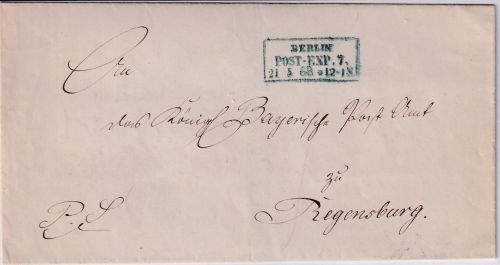 BERLIN
POST-EXP. 7.
21 5 68 * 12-1N
An
das Königl Bayerische Post Amt
zu
Regensburg.
P. S.